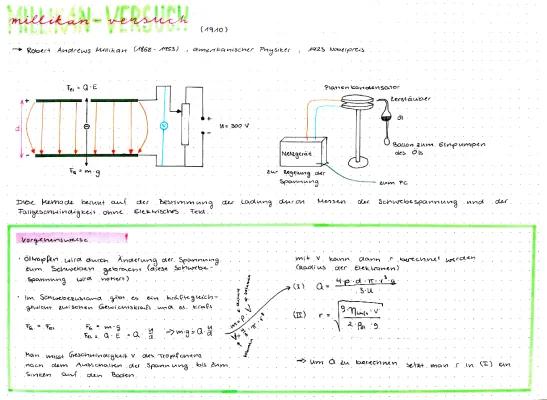 millikan versuch
MILLIKAN-VERSUCH
(1910)
→ Robert Andrews Millikan (1868-1953), amerikanischer Physiker, 1923 Nobelpreis
Fel = Q · E
+
-
d
V
U = 300 V
+
-
FG = m · g
Plattenkondensator
Zerstäuber
Öl
Ballon zum Einpumpen
des Öls
Netzgerät
zur Regelung der
Spannung
zum PC
Diese Methode beruht auf der Bestimmung der Ladung durch Messen der Schwebespannung und der
Fallgeschwindigkeit ohne Elektrisches Feld.
Vorgehensweise
· Öltropfen wird durch Änderung der Spannung
zum Schweben gebracht (diese Schwebe-
spannung wird notiert)
· Im Schwebezustand gibt es ein Kräftegleich-
gewicht zwischen Gewichtskraft und el. Kraft
FG = Fel
FG = m·g
Fel = Q · E = Q · U/d
→ m·g = Q · U/d
m = ρ · V
V = 4/3 · π · r³
· Man misst Geschwindigkeit v des Tröpfchens
nach dem Ausschalten der Spannung bis zum
Sinken auf den Boden.
mit v kann dann r berechnet werden
(Radius der Elektronen)
(I) Q = 4ρ · d · π · r³ · g / 3 · U
(II) r = √ 9 · η · v / 2 · ρ · g
→ um Q zu berechnen setzt man r in (I) ein